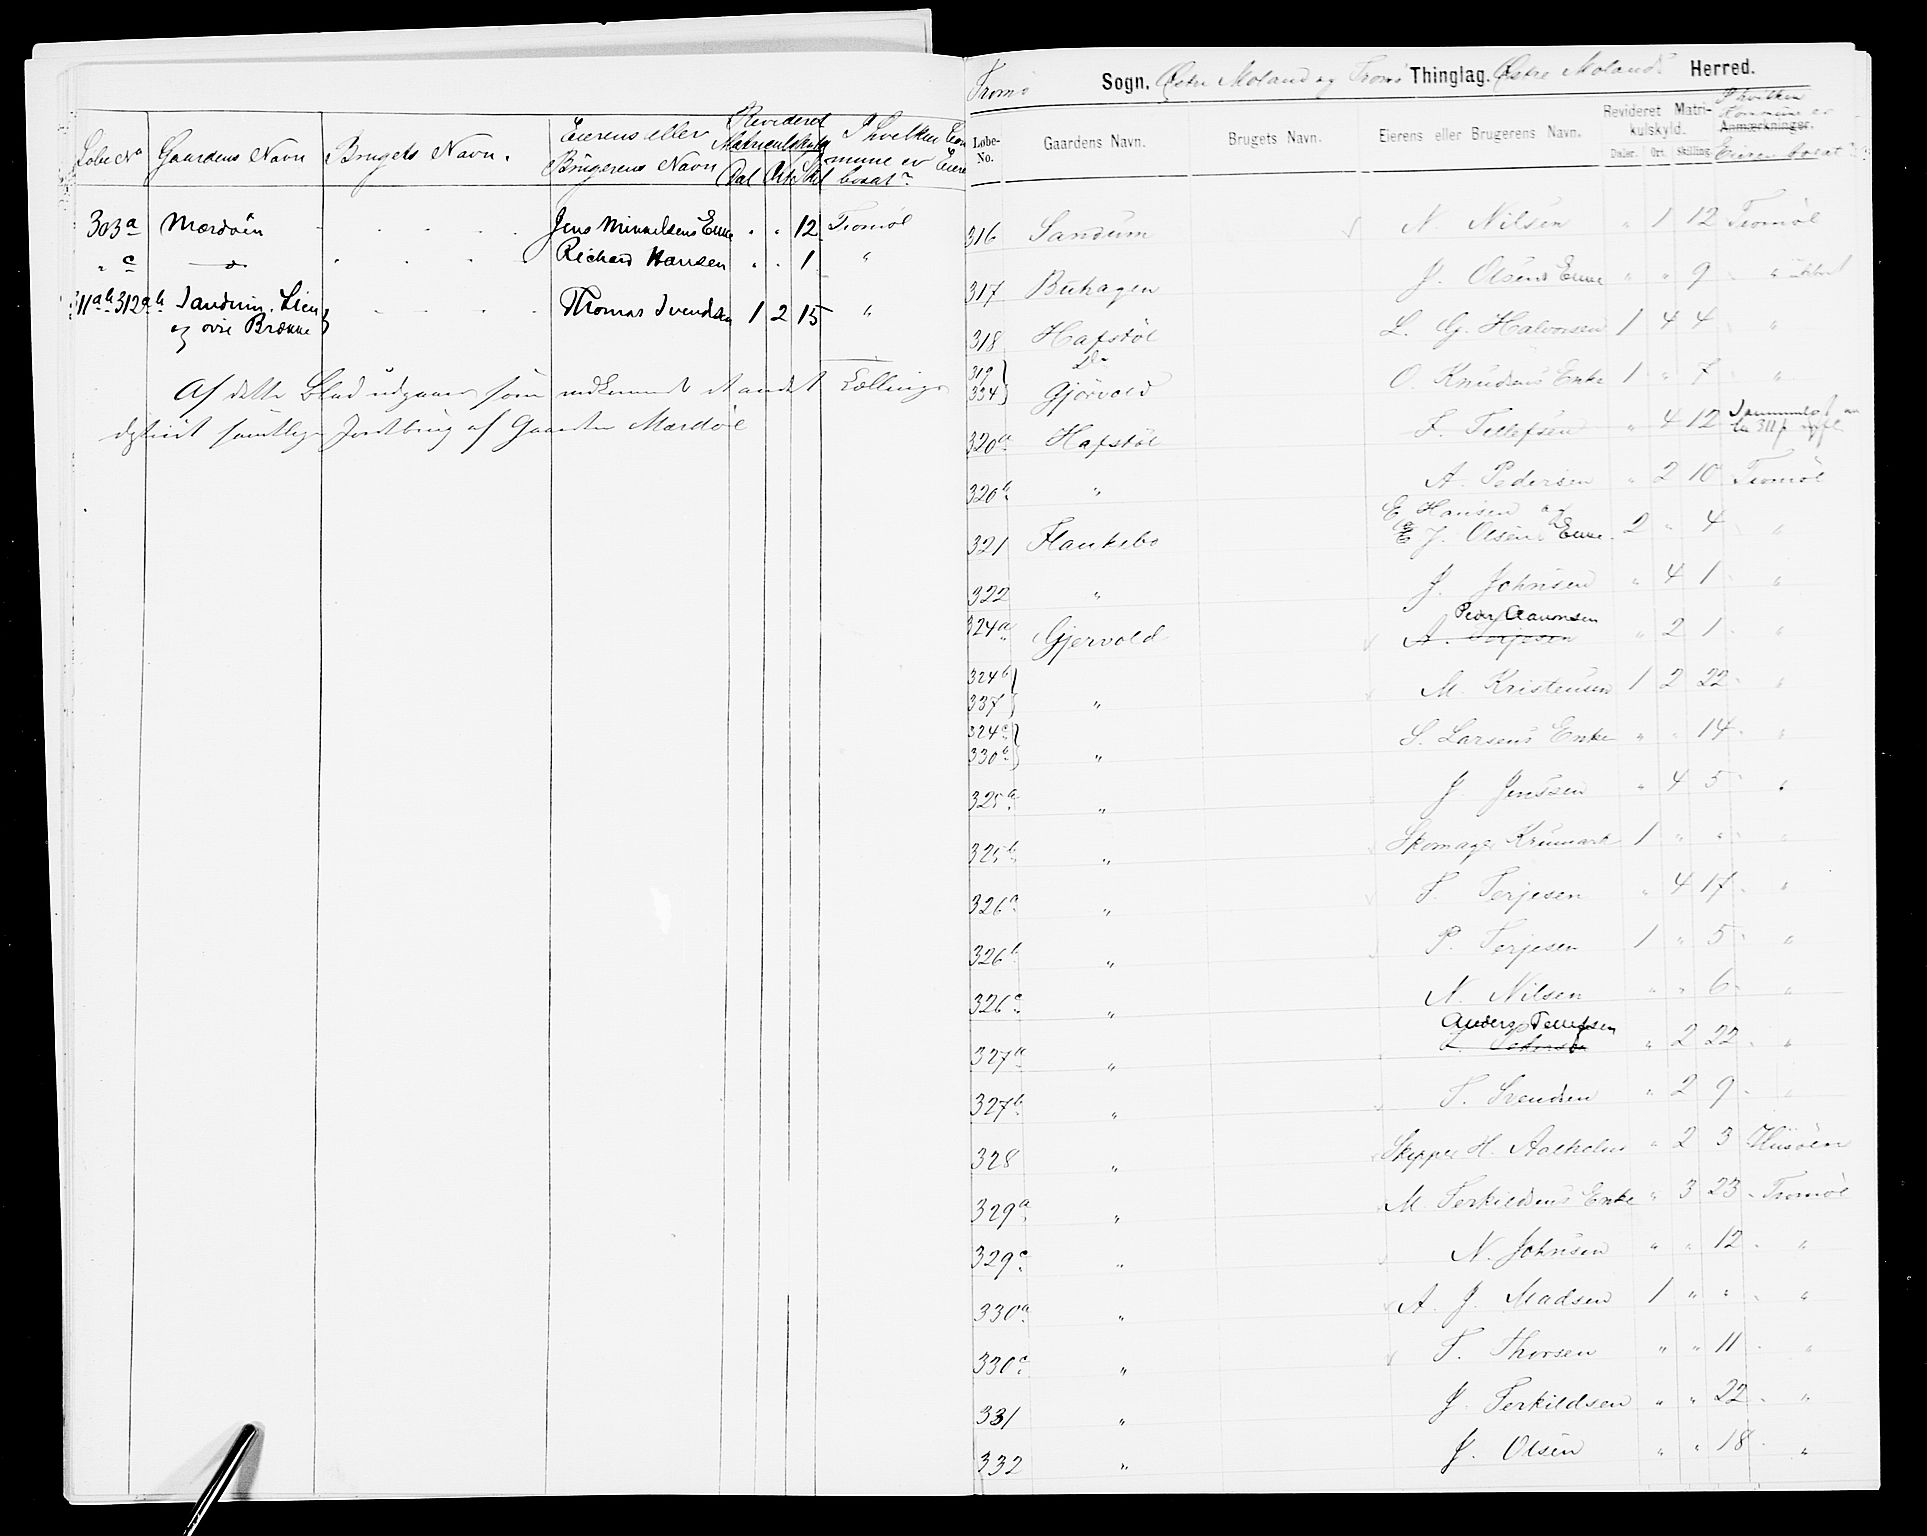 Løbe No Gaardens Navn Brugets Navn. Eierens eller Brugerens Navn Revideret Matriculskyld Dal Ort Skl I hvilken Kommune er Eieren bosat?
303a Mærdøen Jens Mikkelsens Enke " " 12 Tromøe
" c " Richard Hansen " " 1 "
311ab 312ab Sandum, Lien Thomas Svendsen 1 2 15 "
og øvre Brække
Af dette Blad udgaar som vedkommende et andet Tællings
district samtlige Jordbrug af Gaarden Mærdøe
Tromø Sogn. Østre Moland og Tromø Thinglag. Østre Molands Herred.
Løbe-No. Gaardens Navn. Brugets Navn. Eierens eller Brugerens Navn. Revideret Matrikulskyld. Daler. Ort. Skilling. Anmærkninger. I hvilken Kommune er Eieren bosat?
316 Sandum N. Nilsen " 1 12 Tromøe
317 Buhagen J. Olsens Enke " " 9 "
318 Hafstøl L. G. Halvorsen 1 4 4 "
319 Do
334 Gjørvold O. Knudsens Enke 1 " 7 "
320a Hafstøl T. Tellefsen " 4 12
320b " A. Pedersen " 2 10 Tromøe
E. Hansen og
321 Flankebo E. J. Olsens Enke 2 " 4 "
322 " J. Johnsen " 4 1 "
Peder Aavonsen
324a Gjervold A. Terjesen " 2 1 "
324b
337 " M. Kristensen 1 2 22 "
324c
330b " S. Larsens Enke " " 14 "
325a " J Jenssen " 4 5 "
325b " Skomager Krumark 1 " " "
326a " T. Terjesen " 4 17 "
326b " P. Terjesen 1 " 5 "
326c " N. Nilsen " " 6 "
Anders Tellefsen
327a " " 2 22 "
327b " T. Svendsen " 2 9 "
328 " Skipper H. " 2 3 Husøen
329a " M. Terkildsens Enke " 3 23 Tromøe
329c " N. Johnsen " " 12 "
330a " A. J. Madsen 1 " " "
330c " T. Thorsen " " 11 "
331 " J. Terkildsen " " 22 "
332 " J. Olsen " " 18 "